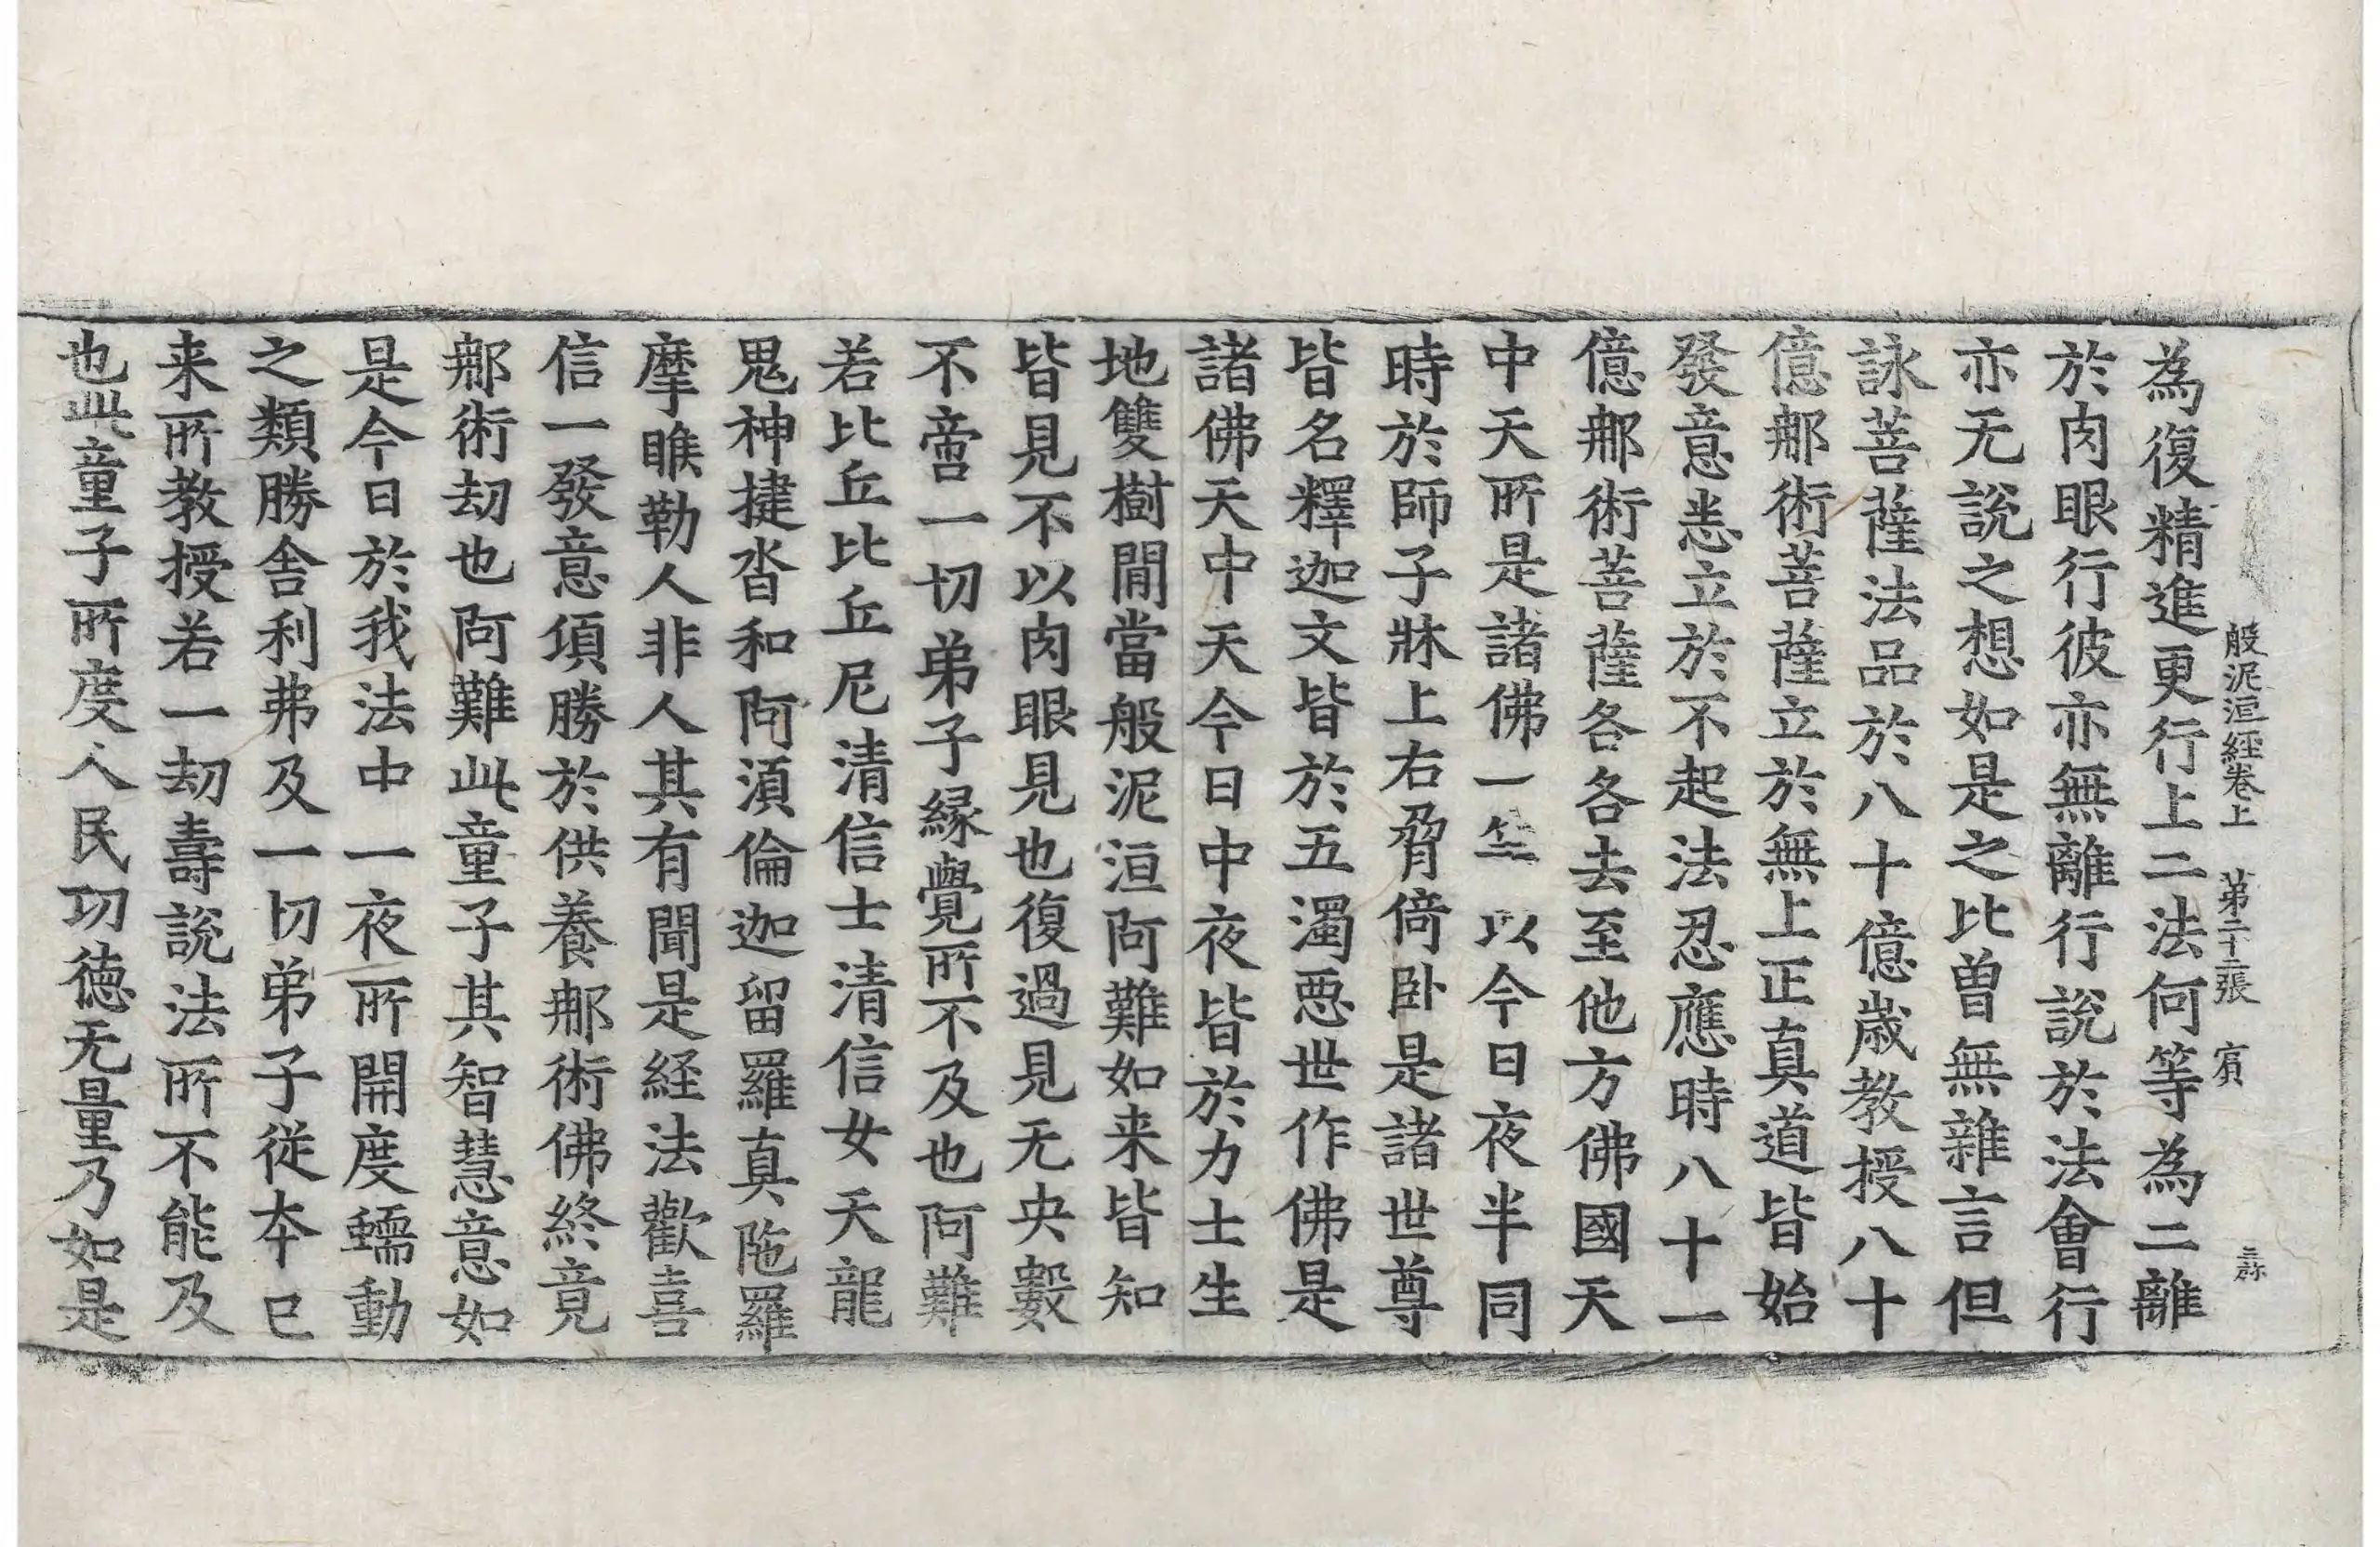 般泥洹經卷上　第二十二張　賓
為復精進更行上二法何等為二離
於肉眼行彼亦無離行說於法會行
亦无說之想如是之比曽無雜言但
詠菩薩法品於八十億歲教授八十
億那術菩薩立於無上正真道皆始
發意悉立於不起法忍應時八十一
億那術菩薩各各去至他方佛國天
中天所是諸佛一以今日夜半同
時於師子牀上右脅倚卧是諸世尊
皆名釋迦文皆於五濁惡世作佛是
諸佛天中天今日中夜皆於力士生
地雙樹閒當般泥洹阿難如来皆知
皆見不以肉眼見也復過見无央數
不啻一切弟子緣覺所不及也阿難
若比丘比丘尼清信士清信女天龍
鬼神揵沓和阿須倫迦留羅真陁羅
摩睺勒人非人其有聞是経法歡喜
信一發意須勝於供養那術佛終竟
那術劫也阿難此童子其智慧意如
是今日於我法中一夜所開度蠕動
之類勝舍利弗及一切弟子從夲已
来所教授若一劫壽說法所不能及
也此童子所度人民功德无量乃如是